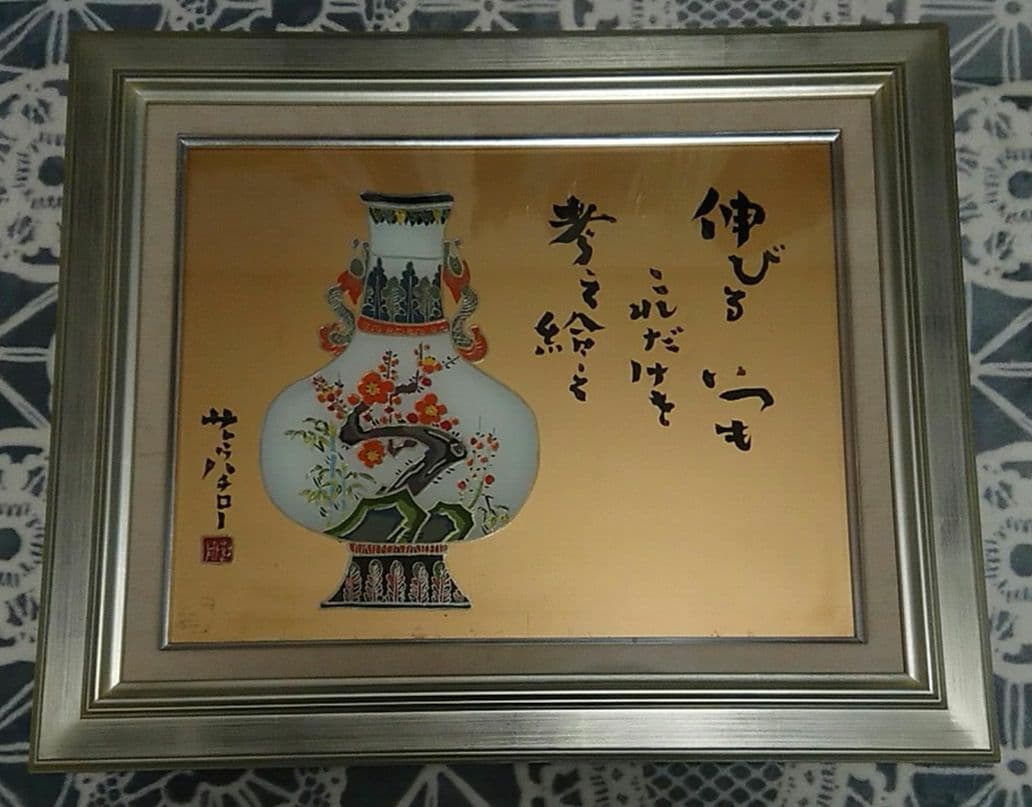 伸びる いつも
これだけを
考え給え
サトウハチロー